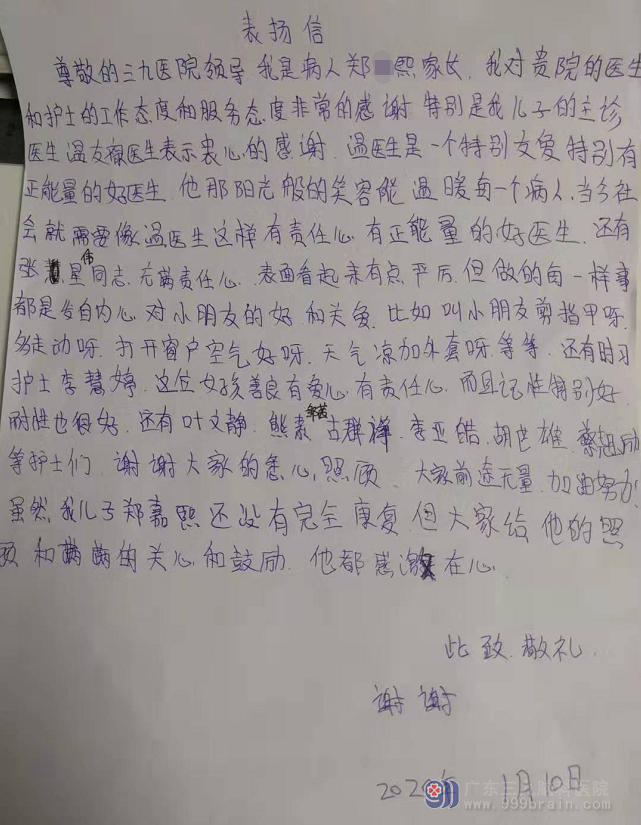 表扬信
尊敬的三九医院领导 我是病人郑 熙家长, 我对贵院的医生
和护士的工作态度和服务态度非常的感谢 特别是我儿子的主诊
医生温友 医生表示衷心的感谢. 温医生是一个特别友爱特别有
正能量的好医生. 他那阳光般的笑容能温暖每一个病人, 当今社
会就需要像温医生这样有责任心, 有正能量的好医生. 还有
张星伟同志, 充满责任心. 表面看起来有点严厉, 但做的每一样事
都是发自内心对小朋友的好和关爱. 比如叫小朋友剪指甲呀.
多走动呀. 打开窗户空气好呀. 天气凉加外套呀. 等等. 还有时习
护士李慧婷. 这位女孩善良有爱心, 有责任心. 而且记性特别好.
耐性也很好. 还有叶文静. 熊素 古群祥. 李亚皓. 胡世雄. 励
等护士们. 谢谢大家的悉心照顾. 大家前途无量. 加油努力.
虽然我儿子郑嘉熙还没有完全康复. 但大家给他的照
顾和满满的关心和鼓励. 他都感激在心.
此致. 敬礼.
谢谢
2020年 1月10日
广东三九脑科医院
www.999brain.com